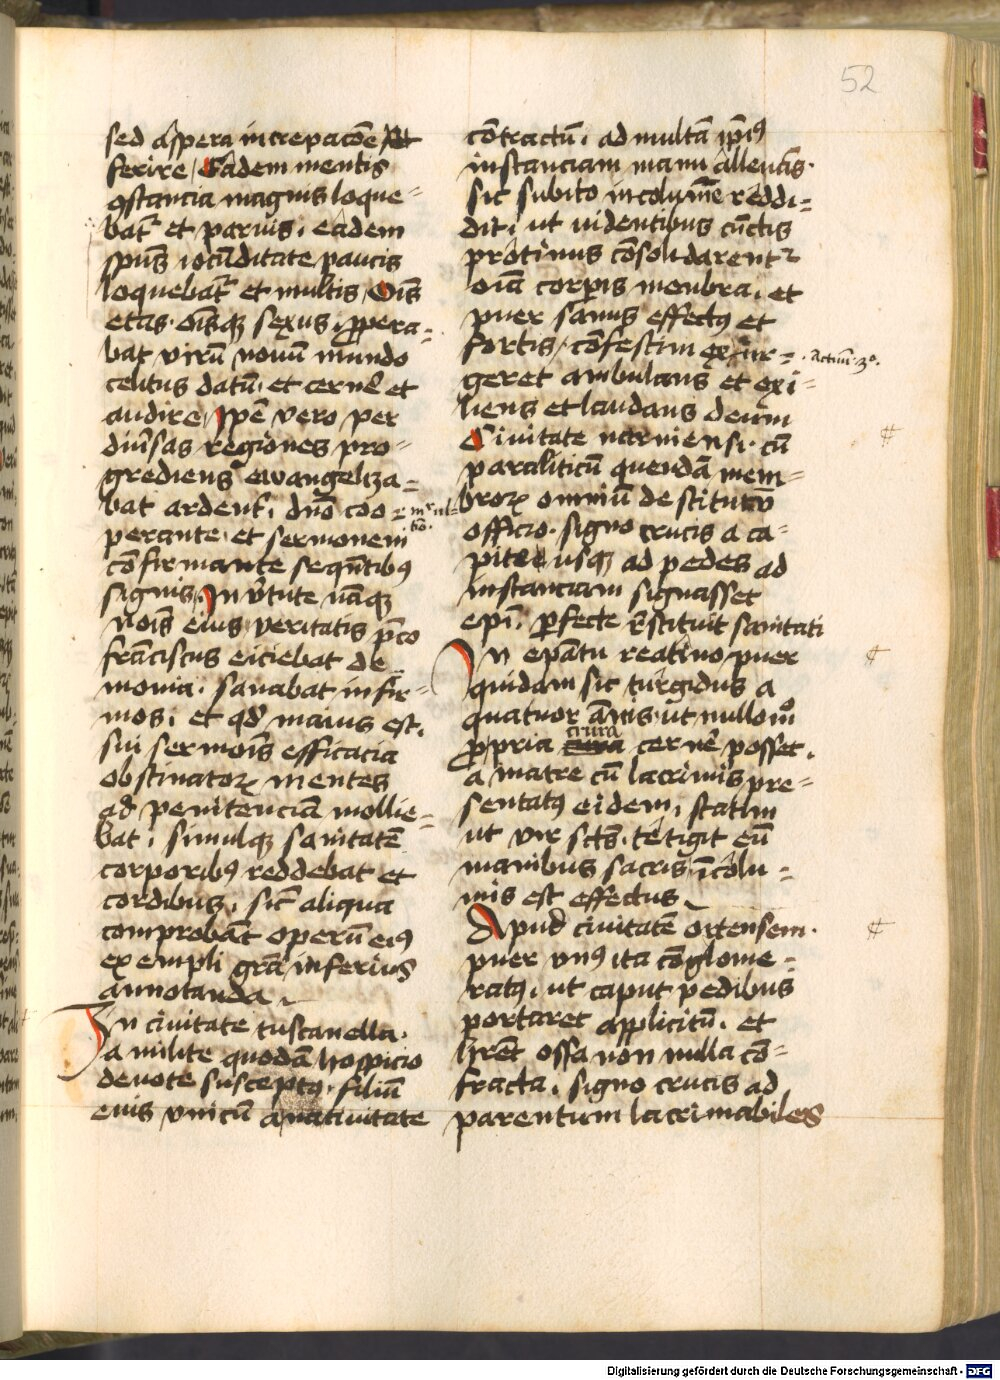 52
sed aspera increpacōe
ferire. Eadem mentis
ꝯstancia magnis loque⸗
bat᷑ et paruis. eadem
spūs iocūditate paucis
loquebat᷑ et multis. Oīs
etas. oīsqꝫ sexus. ꝓpera⸗
bat virū nouū mundo
celitus datū. et cernē et
audire. Ipē vero per
diūsas regiones pro⸗
grediens ewangeliza⸗
bat ardent᷑. dnō coo⸗
perante et sermonem
cōfirmante seqntibꝰ
signis. In v̄tute nāqꝫ
nois eius veritatis p̄co
franciscus eiciebat de⸗
monia. sanabat infir⸗
mos. et qd maius est.
sui sermoīs efficacia
obstinatoꝝ mentes
ad penitenciā mollie⸗
bat. simulqꝫ sanitatē
corporibꝰ reddebat et
cordibus. sic̄ aliqua
comprobāt operū eiꝰ
exempli grā inferius
annotanda.
In ciuitate tuscanella.
a milite quodā hospicio
deuote susceptꝰ. filiū
eius vnicū a natiuitate
cōtractū. ad multā ip̄iꝰ
instanciam manu alleuās.
sic subito incolumē reddi⸗
dit. ut uidentibus cūctis
protinus cōsolidarentᷣ
oīa corpis menbra. et
puer sanus effectꝰ et
fortis. cōfestim exur⸗
Actuū. 3º.
geret ambulans et exi⸗
liens et laudans deum
Ciuitate narniensi. cū
paraliticū quendā mem⸗
broꝝ omniū destitutū
officio. signo crucis a ca⸗
pite usqꝫ ad pedes ad
instanciam signasset
epī. ꝑfecte restituit sanitati
In epātu reatino puer
quidam sic turgidus a
quatuor annis. ut nullo mº
crura
ꝓpria cernē posset.
a matre cū lacrimis pre⸗
sentatꝰ eidem. statim
ut vir scts. tetigit eū
manibus sacris. īcolu⸗
mis est effectus
Apud ciuitatē ortensem.
puer vnꝰ ita cōglome⸗
ratꝰ. ut caput pedibus
portaret applicitū. et
hrēt ossa non nulla cō⸗
fracta. signo crucis ad
parentum lacrimabiles
Digitalisierung gefördert durch die Deutsche Forschungsgemeinschaft - DFG